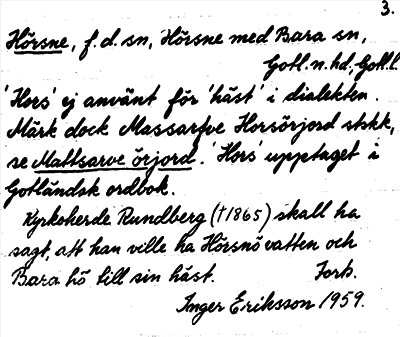 3.
Hörsne, f.d. sn, Hörsne med Bara sn,
Gotl. n. hd, Gotl. l.
'Hors' ej använt för 'häst' i dialekten.
Märk dock Massarfve Horsörjord stskk,
se Mattsarve örjord. 'Hors' upptaget i
Gotländsk ordbok.
Kyrkoherde Rundberg (†1865) skall ha
sagt, att han ville ha Hörsnövatten och
Bara hö till sin häst. Forts.
Inger Eriksson 1959.